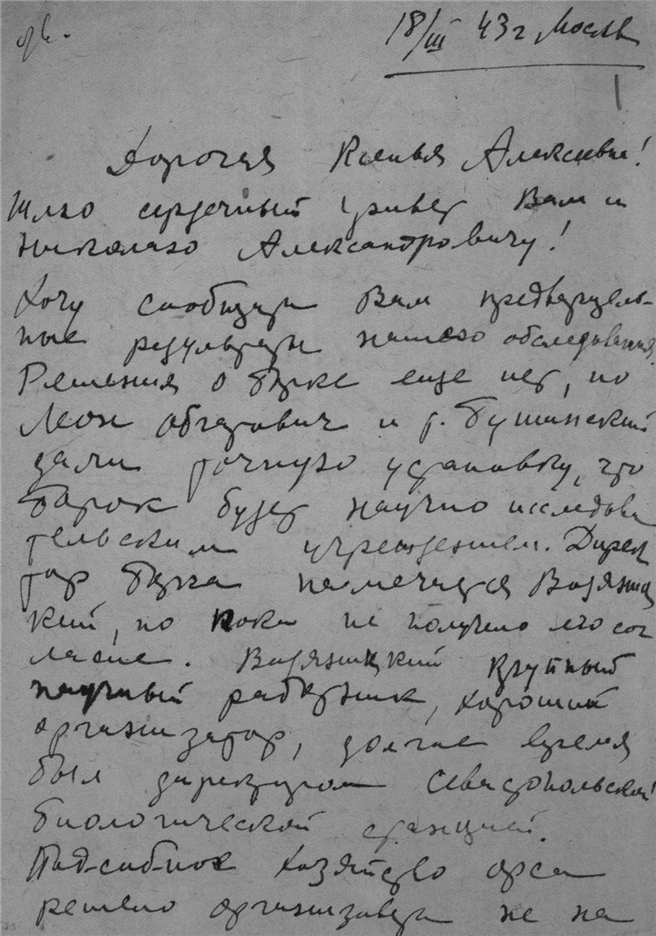 18/III 43 г Москва
1
Дорогая Ксенья Алексевна!
Шлю сердечный привет Вам и
Николаю Александровичу!
Хочу сообщить Вам предваритель-
ные результаты нашего обследования.
Решения о парке еще нет, но
Леон Абгарович и т. Бушинский
дали точную установку, что
парк будет научно исследова
тельским учреждением. Дирек
тор парка намечается Водяниц
кий, но пока не получено его сог
ласие. Водяницкий крупный
научный работник, хороший
организатор, долгое время
был директором Севастопольской
биологической станцией.
Подсобное хозяйство
решено организовать не на